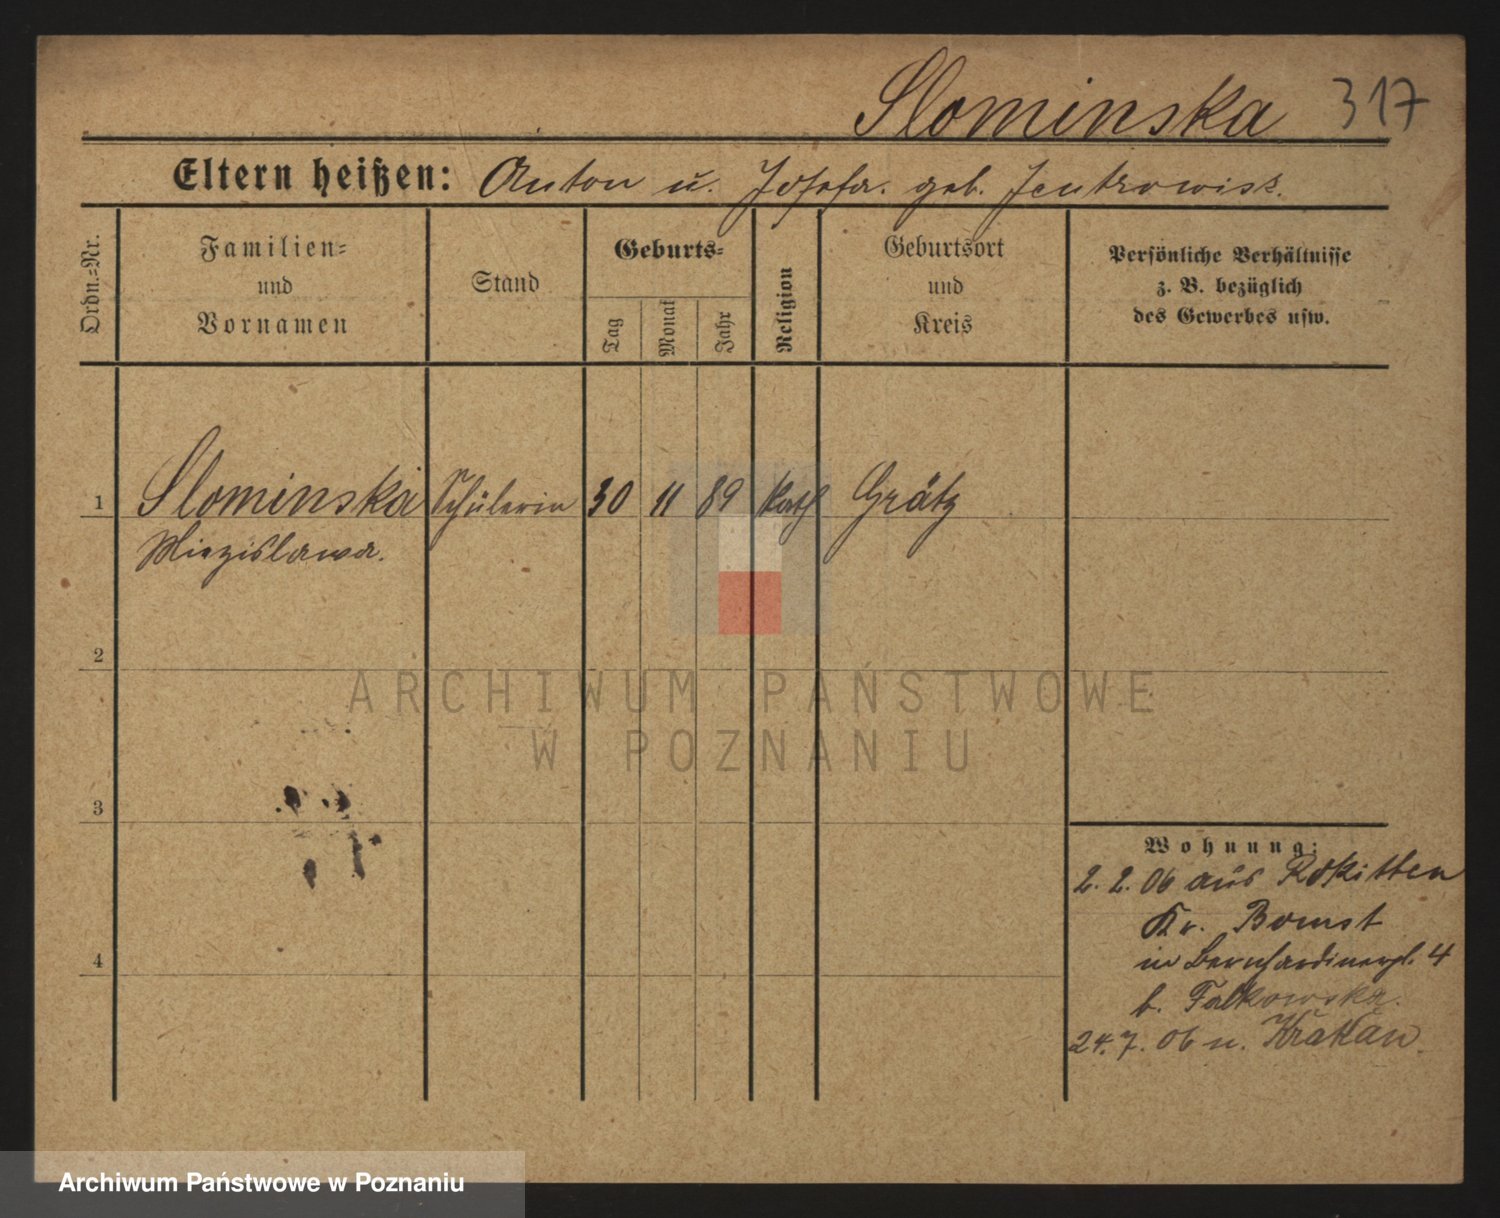 Slominska 317
Eltern heißen: Anton u. Josefa. geb. Jentrowisk.
Ordn.=Nr.
Familien=
und
Vornamen
Stand
Geburts=
Tag
Monat
Jahr
Religion
Geburtsort
und
Kreis
Persönliche Verhältnisse
z. B. bezüglich
des Gewerbes usw.
1 Slominska Schülerin 30 11 89 kath Grätz
Miezislawa.
2
ARCHIWUM PAŃSTWOWE
W POZNANIU
3
Wohnung:
2. 2. 06 aus Rokitten
Kr. Bomst
in Bernhardinerpl. 4
b. Falkowska.
4
24. 7. 06 n. Krakau.
Archiwum Państwowe w Poznaniu